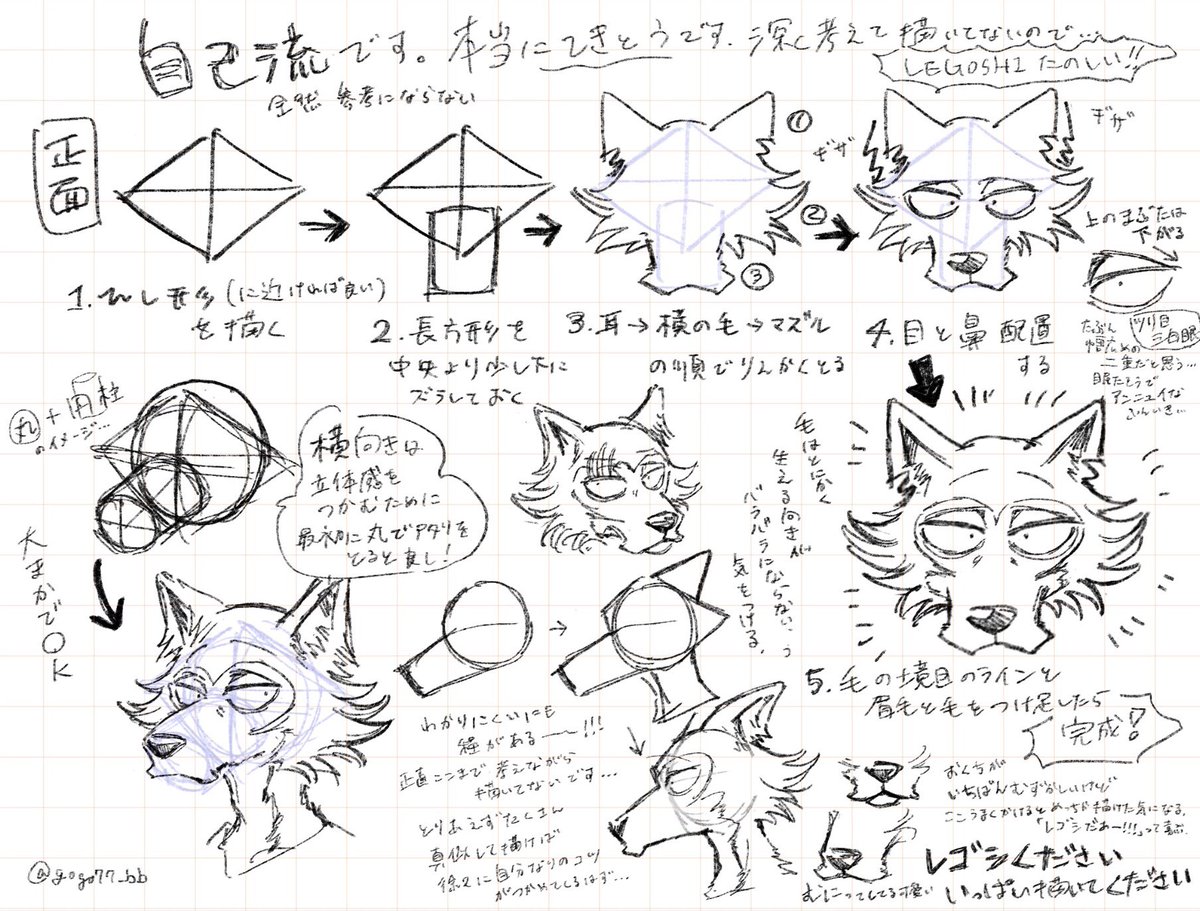 自己流です。本当にてきとうです、深く考えて描いてないので…
LEGOSHI たのしい!!
全然 参考にならない
正面
1. ひし形(に近ければ良い)
を描く
2. 長方形を
中央より少し下に
ズラしておく
①
②
③
3. 耳→横の毛→マズル
の順でりんかくとる
ギザ
ギザ
4. 目と鼻 配置
する
上のまぶたは
下がる
ツリ目
三白眼
たぶん
幅広めの
二重だと思う…
眠たそうで
アンニュイな
ふんいき…
丸+角柱
のイメージ…
大まかでOK
横向きは
立体感を
つかむために
最初に丸でアタリを
とると良し!
毛はとにかく
生える向きが
バラバラにならないよう
気をつける。
5. 毛の境目のラインと
眉毛と毛をつけ足したら
完成!
わかりにくいにも
程がある〜〜!!!
正直ここまで考えながら
描いてないです…
とりあえずたくさん
真似して描けば
徐々に自分なりのコツ
がつかめてくるはず…
おくちが
いちばんむずかしいけど
ここうまくかけるとめっちゃ描けた気になる。
「レゴシだあー!!!」って喜ぶ。
むにってしてる
レゴシください
いっぱい描いてください
@gogo77_bb